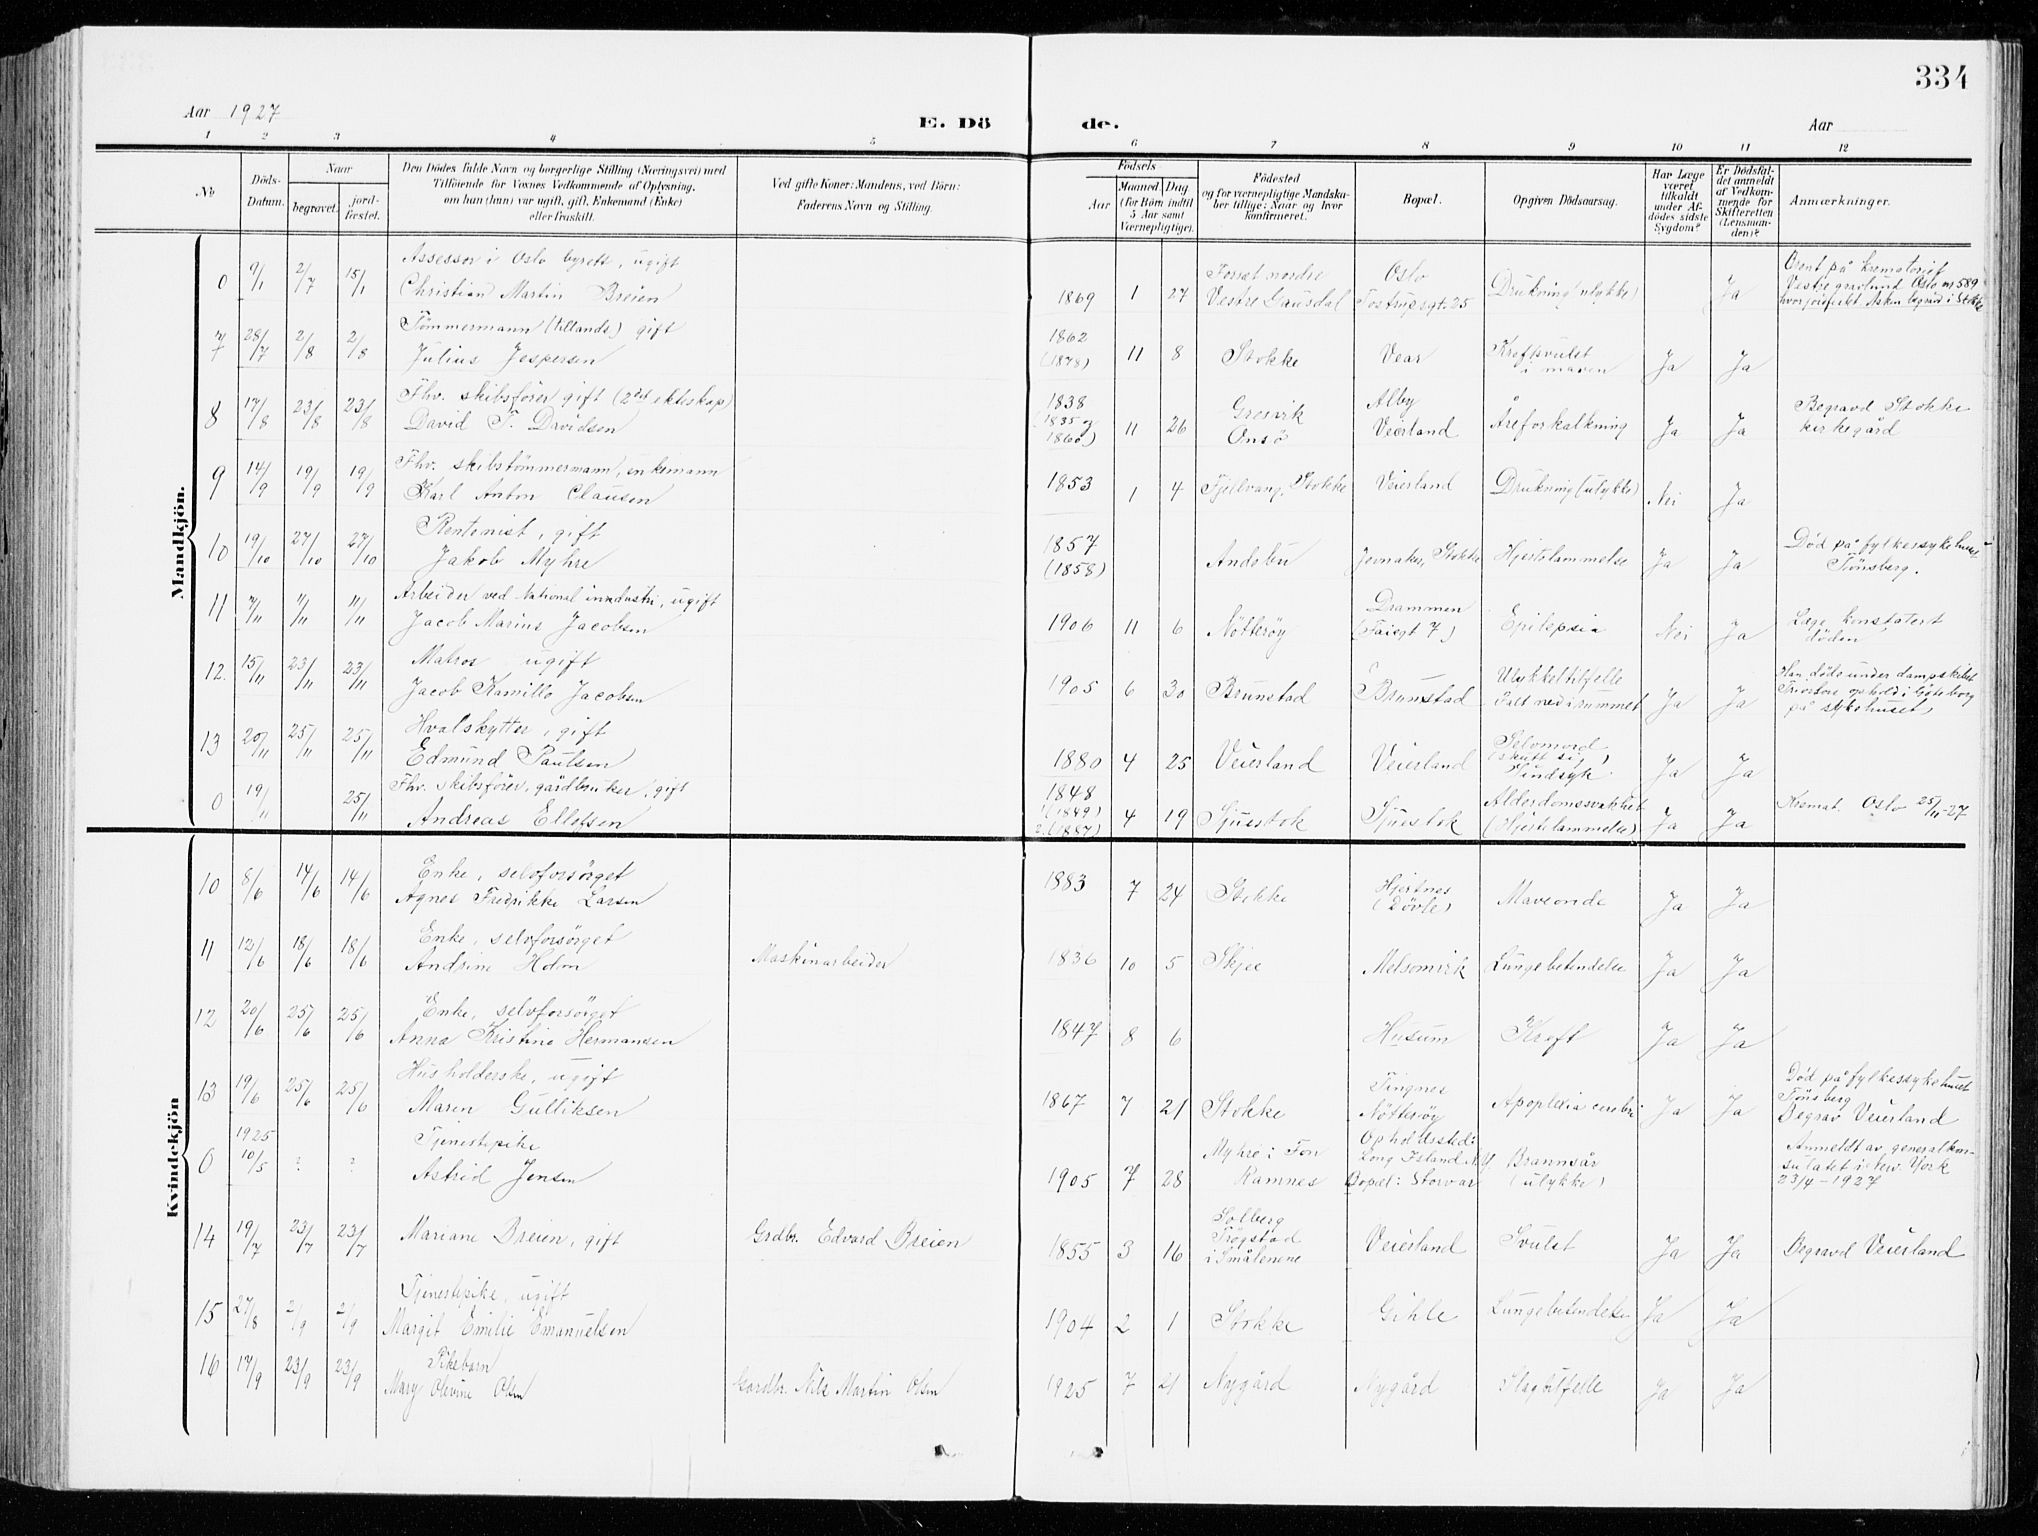 334
Aar 1927
E. Dö de.
Aar
1 2 3 4 5 6 7 8 9 10 11 12
No
Döds-Datum.
Naar
begravet.
jord-fæstet.
Den Dödes fulde Navn og borgerlige Stilling (Næringsvei) med
Tilföiende for Voxnes Vedkommende af Oplysning,
om han (hun) var ugift, gift, Enkemand (Enke)
eller fraskilt.
Ved gifte Koner: Mandens, ved Börn:
Faderens Navn og Stilling.
Födsels
Aar
Maaned
Dag
(for Börn indtil
5 Aar samt
Værnepligtige).
Födested
og for værnepligtige Mandska-
ber tillige: Naar og hvor
konfirmeret.
Bopæl.
Opgiven Dödsaarsag.
Har Læge
været
tilkaldt
under Af-
dödes sidste
Sygdom?
Er Dödsfal-
det anmeldt
af Vedkom-
mende for
Skifteretten
(Lensman-
den)?
Anmærkninger.
Mandkjön.
0 9/1 2/7 15/1 Assessor i Oslo byrett, ugift
Christian Martin Breien 1869 1 27 Forset nordre
Vestre Gausdal Oslo
Tostrupsgt. 25 Drukning (ulykke) Ja Brent på krematoriet
Vestre gravlund Oslo nr 589
7 28/7 2/8 2/8 Tömmermann (tillands) gift
Julius Jespersen 1862
(1878) 11 8 Stokke Vear Kreftsvulst
i maven Ja Ja
8 17/8 23/8 23/8 Fhv. skibsförer gift (2det ekteskap)
David T. Davidsen 1838
(1835 og
1860) 11 26 Gresvik
Onsö Alby
Veierland Åreforkalkning Ja Ja Begravd Stokke
kirkegård
9 14/9 19/9 19/9 Fhv. skibstömmermann, enkemann
Karl Anton Clausen 1853 1 4 Fjellvang, Stokke Veierland Drukning (ulykke) Nei Ja
10 19/10 27/10 27/10 Rentenist, gift
Jakob Myhre 1857
(1858) Andebu Jernaker, Stokke Hjertelammelse Ja Ja Död på fylkessykehuset
Tönsberg.
11 7/11 11/11 11/11 Arbeider ved National inndustri, ugift
Jacob Marius Jacobsen 1906 11 6 Nötteröy Drammen
(Faiegt 7) Epilepsia Nei Ja Læge konstatert
döden
12. 15/11 23/11 23/11 Matros ugift
Jacob Kamillo Jacobsen 1905 6 30 Brunstad Brunstad Ulykkestilfelle
Falt ned i rummet Ja Ja Han döde under dampskibet
ophold i Göteborg
på sykehuset
13 20/11 25/11 25/11 Hvalskytter, gift
Edmund Paulsen 1880 4 25 Veierland Veierland Selvmord
(skutt sig)
Sindsyk. Ja Ja
0 19/11 25/11 Fhv. skibsförer, gårdbruker, gift
Andreas Ellefsen 1848
1(1849)
2(1887) 4 19 Sjuestok Sjuestok Alderdomssvakhet
(Hjertelammelse) Ja Ja Kremat. Oslo 25/11-27
Kvindekjön
10 8/6 14/6 14/6 Enke, selvforsörget
Agnes Fredrikke Larsen 1883 7 24 Stokke Hjertnes
(Dövle) Maveonde Ja Ja
11 12/6 18/6 18/6 Enke, selvforsörget
Andrine Holm Maskinarbeider 1836 10 5 Skjee Melsomvik Lungebetendelse Ja Ja
12 20/6 25/6 25/6 Enke, selvforsörget
Anna Kristine Hermansen 1847 8 6 Husum Kreft Ja Ja
13 19/6 25/6 25/6 Husholderske, ugift
Maren Gulliksen 1867 7 21 Stokke Tingnes
Nötteröy Apoplexia cerebri Ja Ja Död på fylkessykehuset
Tönsberg
Begrav Veierland
0 1925
10/5 ? ? Tjenestepike
Astrid Jensen 1905 7 28 Myhre i Fon
Ramnes Opholdssted:
Long Island N.Y.
Bopæl: Storvar Brannsår
(ulykke) Anmeldt av generalkon-
sulatet i New York
23/4-1927
14 19/7 23/7 23/7 Mariane Breien, gift Grdbr. Edvard Breien 1855 3 16 Solberg
Trögstad
i Smålenene Veierland Svulst Ja Ja Begravd Veierland
15 27/8 2/9 2/9 Tjenestepike, ugift
Margit Emilie Emanuelsen 1904 2 1 Stokke Gihle Lungebetendelse Ja Ja
16 17/9 23/9 23/9 Pikebarn
Mary Olevine Olsen Gardbr. Nils Martin Olsen 1925 7 21 Nygård Nygård Slagtilfelle Ja Ja